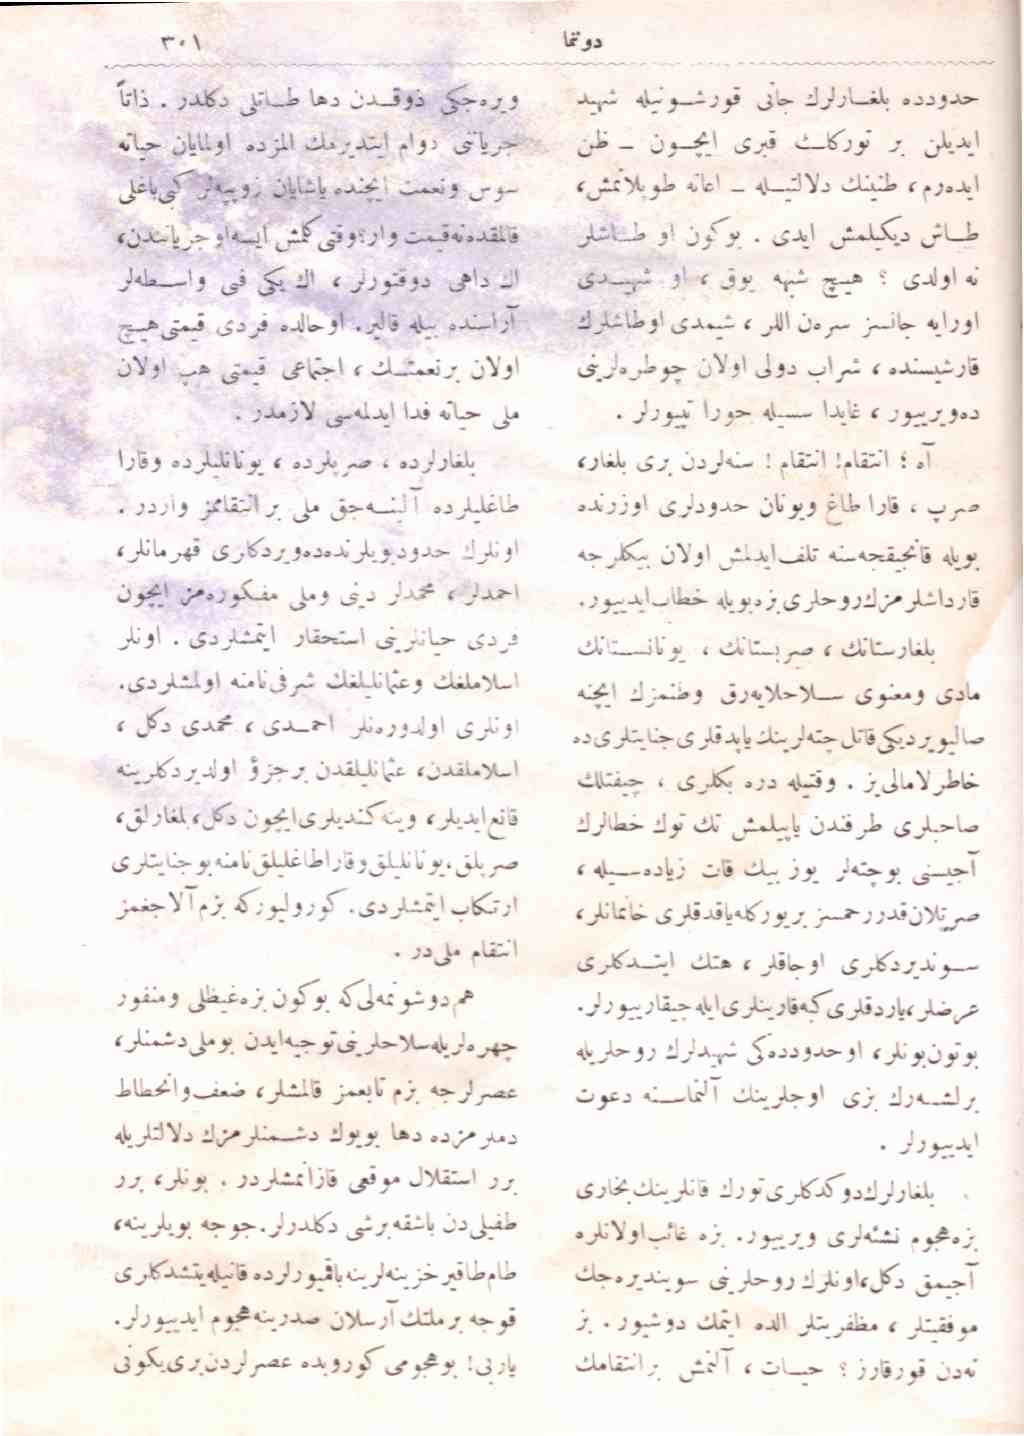 دوتنما
٣٠١
حدودده بلغارلرك جانی قورشونیله شهید
ایدیلن بر تورك قبری ایچون – ظن
ایدەرم ، طنینك دلالتیله – اعانه طوپلانمش،
طاش دیكیلمش ایدی . بوكون او طاشلر
نه اولدی ؟ هیچ شبهه یوق ، او شهیدی
اورایه جانسز سرەن اللر ، شیمدی اوطاشلرك
قارشیسنده ، شراب دولی اولان چوطرەلرینی
دەویرییور ، غایدا سسیله حورا تپیورلر .
آه ؛ انتقام! انتقام ! سنەلردن بری بلغار،
صرپ ، قارا طاغ ویونان حدودلری اوزرنده
بویله قانجیقجەسنه تلف ایدلمش اولان بیكلرجه
قارداشلرمزك روحلری بزه بویله خطاب ایدییور.
بلغارستانك ، صربستانك ، یونانستانك
مادی ومعنوی سلاحلایەرق وطنمزك ایچنه
صالیویردیكی قاتل چتەلرینك یاپدقلری جنایتلری ده
خاطرلامالی‌یز . وقتیله دره بكلری ، چیفتلك
صاحبلری طرفندن یاپیلمش تك توك خطالرك
آجیسنی بوچتەلر یوز بیك قات زیادەسیله ،
صرتلان قدر رحمسز بریوركله یاقدقلری خانمانلر،
سوندیردكلری اوجاقلر ، هتك ایتدكلری
عرضلر، یاردقلری كبه قارینلری ایله چیقارییورلر.
بوتون بونلر، اوحدوددەكی شهیدلرك روحلریله
برلشەرك بزی اوجلرینك آلنماسنه دعوت
ایدییورلر .
بلغارلرك دوكدكلری تورك قانلرینك بخاری
بزه هجوم نشئەلری ویرییور. بزه غائب اولانلره
آجیمق دكل، اونلرك روحلرینی سویندیرەجك
موفقیتلر ، مظفریتلر الده ایتمك دوشیور. بز
نەدن قورقارز ؟ حیات ، آلنمش برانتقامك
ویرەجكی ذوقدن دها طاتلی دكلدر . ذاتاً
جریاننی دوام ایتدیرمك المزده اولمایان حیاته
سوس ونعمت ایچنده یاشایان زوپپەلر كبی باغلی
قالمقده نه قیمت وار؟ وقتی كلمش ایسه او جریانندن،
اك داهی دوقتورلر ، اك یكی فنی واسطەلر
آراسنده بیله قالیر. اوحالده فردی قیمتی هیچ
اولان برنعمتك ، اجتماعی قیمتی هپ اولان
ملی حیاته فدا ایدلمەسی لازمدر .
بلغارلرده ، صرپلرده ، یونانلیلرده وقارا
طاغلیلرده آلینەجق ملی بر انتقاممز واردر .
اونلرك حدود بویلرنده دەویردكلری قهرمانلر،
احمدلر ، محمدلر دینی وملی مفكورەمز ایچون
فردی حیاتلرینی استحقار ایتمشلردی . اونلر
اسلاملغك وعثمانلیلغك شرفی نامنه اولمشلردی.
اونلری اولدورەنلر احمدی ، محمدی دكل ،
اسلاملقدن، عثمانلیلقدن برجزؤ اولدیردكلرینه
قانع ایدیلر، وینه كندیلری ایچون دكل، بلغارلق،
صربلق، یونانلیلق وقاراطاغلیلق نامنه بوجنایتلری
ارتكاب ایتمشلردی. كورولیوركه بزم آلاجغمز
انتقام ملی‌در .
هم دوشونملی‌كه بوكون بزه غیظلی ومنفور
چهرەلریله سلاحلرینی توجیه ایدن بوملی دشمنلر،
عصرلرجه بزم تابعمز قالمشلر، ضعف وانحطاط
دملرمزده دها بویوك دشمنلرمزك دلالتلریله
برر استقلال موقعی قازانمشلردر . بونلر، برر
طفیلی‌دن باشقه برشی دكلدرلر. جوجه بویلرینه،
طام طاقیر خزینەلرینه باقمیورلرده قانیله یتشدكلری
قوجه برملتك آرسلان صدرینه هجوم ایدییورلر.
یاربی! بوهجومی كوروبده عصرلردن بری یكونی